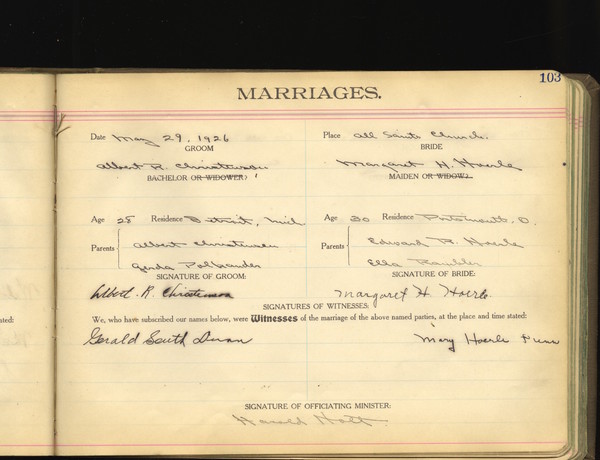 103
MARRIAGES.
Date May 29, 1926 Place All Saints Church.
GROOM BRIDE
Albert R. Christensen Margaret H. Hoerle
BACHELOR OR WIDOWER? MAIDEN OR WIDOW?
Age 28 Residence Detroit, Mich Age 30 Residence Portsmouth, O.
Parents Albert Christensen Parents Edward R. Hoerle
Gerda Ella
SIGNATURE OF GROOM: SIGNATURE OF BRIDE:
Albert. R. Christensen Margaret H Hoerle
SIGNATURES OF WITNESSES:
ted: We, who have subscribed our names below, were Witnesses of the marriage of the above named parties, at the place and time stated:
Gerald South Mary Hoerle
SIGNATURE OF OFFICIATING MINISTER:
Harold Holt